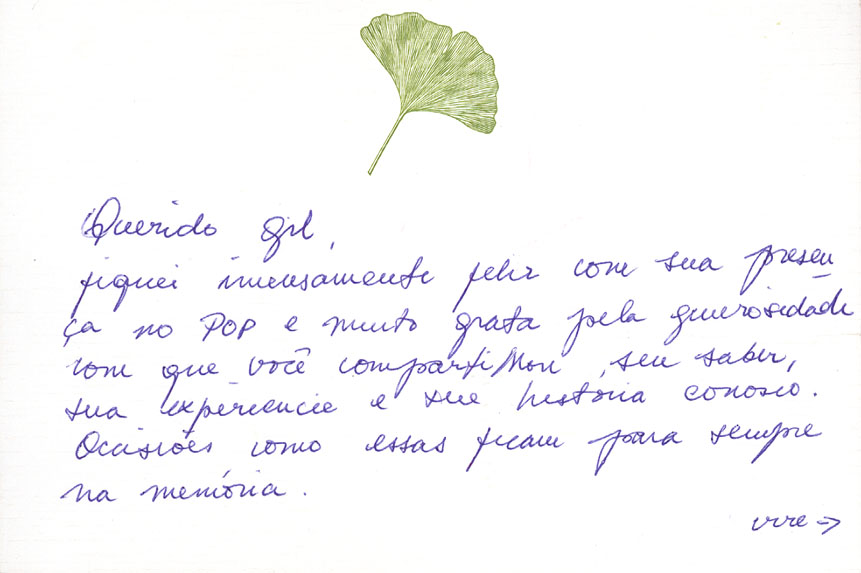 Querido Gil,
fiquei imensamente feliz com sua presen-
ça no POP e muito grata pela generosidade
com que você compartilhou seu saber,
sua experiencia e sua história conosco.
Ocasiões como essas ficam para sempre
na memória.
vire =>